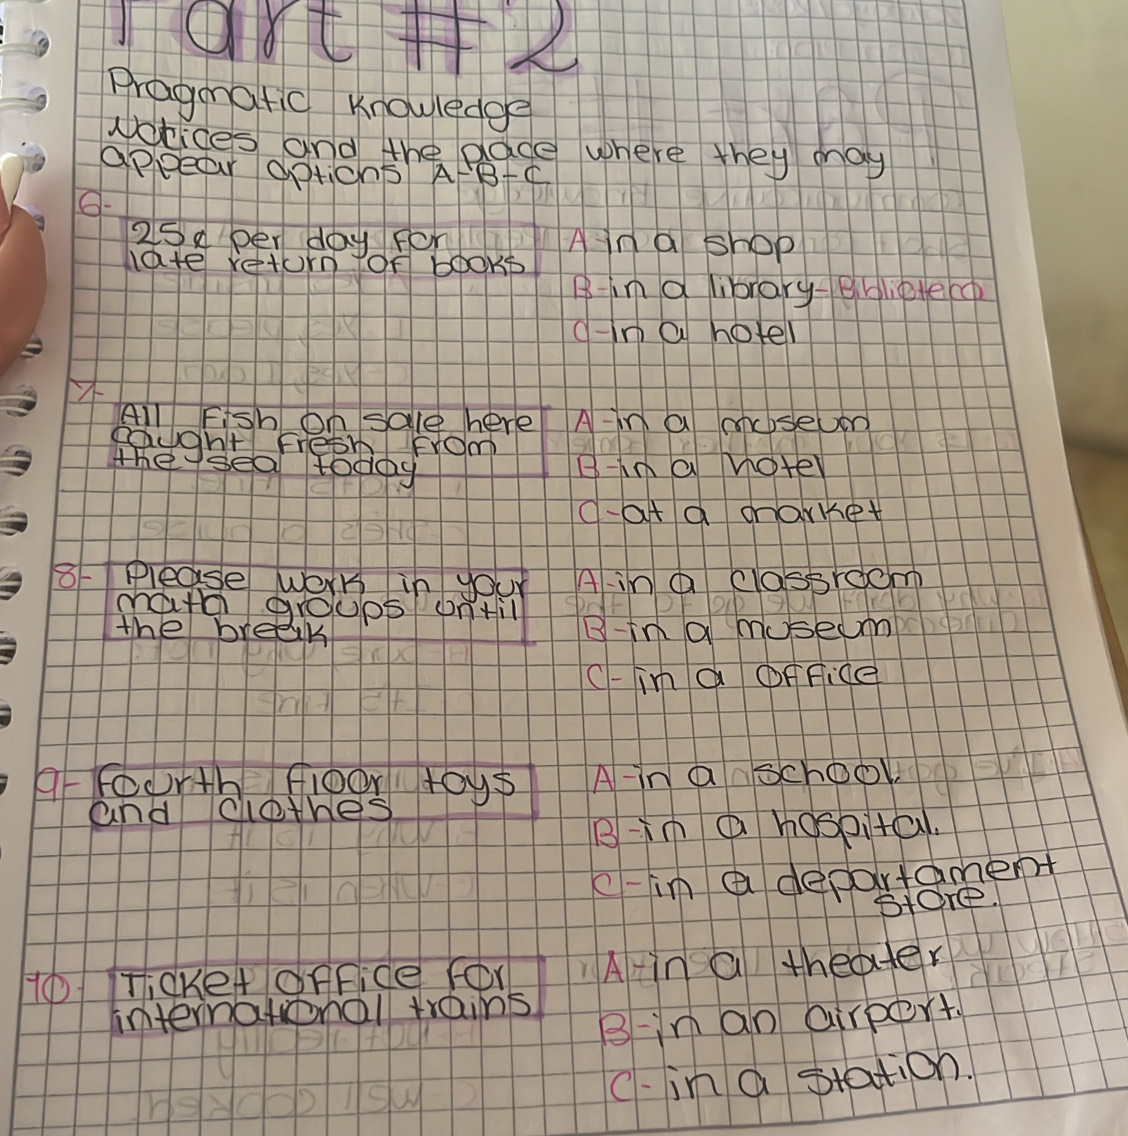 Part #2
Pragmatic Knowledge
Notices and the place where they may
appear options A-B-C
6-
25¢ per day for
late return of books
A-in a shop
B-in a library-Biblioteca
C-in a hotel
7-
All Fish on sale here
caught fresh from
the sea today
A-in a museum
B-in a hotel
C-at a market
8- Please work in your
math groups until
the break
A-in a classroom
B-in a museum
C-in a office
9- Fourth floor toys
and clothes
A-in a school.
B-in a hospital.
C-in a departament
store.
10- Ticket office for
international trains
A-in a theater
B-in an airport.
C-in a station.